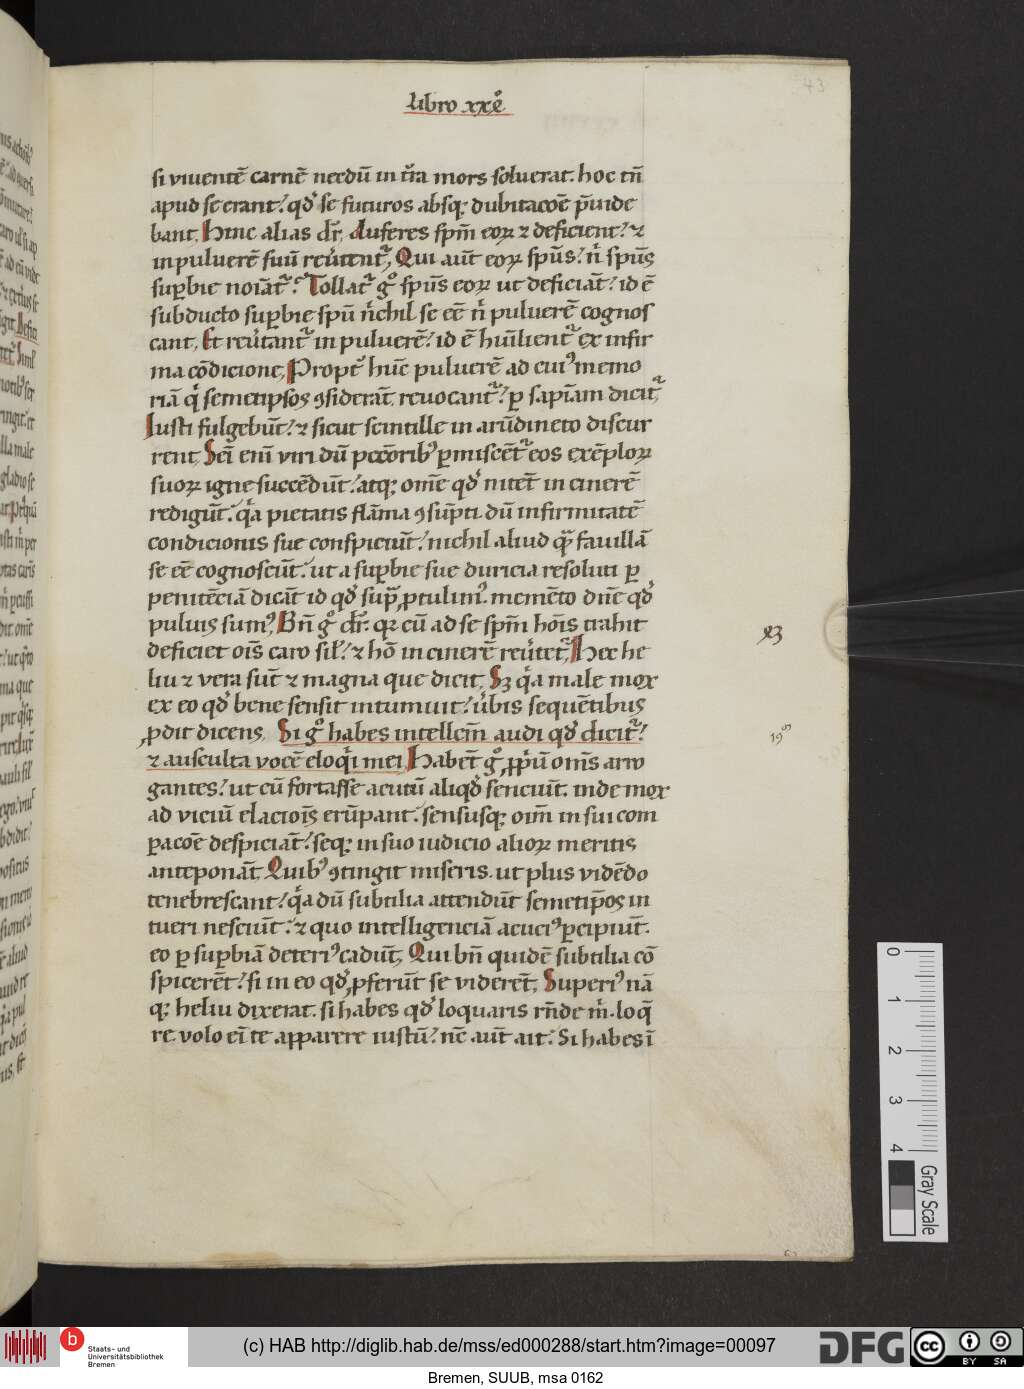 43
libro xxº
si viventē carnē necdū in t̄ra mors soluerat. hoc tn̄
apud se erant. qd̛ se futuros absqꝫ dubitacoē p̄vide
bant. Hinc alias dr̄. Auferes spm̄ eoꝝ ⁊ deficient. ⁊
in puluerē suū reūtentᷣ. Qui aūt eoꝝ spūs. nͥ spūs
supbie noīatᷣ. Tollatᷣ gͦ spūs eoꝝ ut deficiāt. id ē
subducto supbie spū nͥchil se eē nͥ puluerē cognos
cant. Et reūtantᷣ in puluerē. id ē hūilientᷣ ex infir
ma cōdicione. Proptͥ hūc puluerē ad cuiꝰ memo
riā qͥ semetipsos ꝯsiderāt. revocantᷣ. ꝑ sapīam dicitᷣ.
Iusti fulgebūt. ⁊ sicut scintille in arūdineto discur
rent. Sci̅ eni̅ viri dū pcc̄oribꝰ ꝑmiscētᷣ eos exēploꝝ
suoꝝ igne succēdūt. atqꝫ om̄e qd̛ nitet̄ in cinerē
redigūt. qͥa pietatis flāma ꝯsūpti. dū infirmitatē
condicionis sue conspiciūt. nichil aliud qᷓ favillā
se eē cognoscūt. ut a supbie sue duricia resoluti ꝑ
penitēciā dicāt id qd̛ supᷓ ꝓtulimꝰ. memēto dn̄e qd̛
puluis sumꝰ. Bn̄ gͦ dr̄. qꝛ cū ad se spm̄ hoīs trahit
deficiet oīs caro sil̛. ⁊ hō in cinerē reūtetᷣ. Hec he
liu ⁊ vera sūt ⁊ magna que dicit. Sꝫ qͥa male mox
ex eo qd̛ bene sensit intumuit. ūbis sequētibus
ꝓdit dicens. Si gͦ habes intellcm̄ audi qd̛ dicitᷣ.
⁊ ausculta vocē eloqͥi mei. Habet̄ gͦ ꝓpͥū om̄s arro
gantes. ut cū fortasse acutū aliqd̛ senciūt. inde mox
ad viciū elacioīs erūpant. sensusqꝫ oim̄ in sui com
ꝑacoē despiciāt. seqꝫ in suo iudicio alioꝝ meritis
anteponāt. Quibꝰ ꝯtingit miseris. ut plus vidēdo
tenebrescant. qͥa dū subtilia attendūt semetip̄os in
tueri nesciūt. ⁊ quo intelligenciā acuciꝰ ꝑcipiūt.
eo ꝑ supbiā deteriꝰ cadūt. Qui bn̄ quidē subtilia cō
spicerēt. si in eo qd̛ ꝓferūt se viderēt. Superiꝰ nā
qꝫ heliu dixerat. si habes qd̛ loquaris rn̄de mͥ. loq̄
re. volo ei̅ te apparere iustū. nc̄ aūt ait. Si habes ī
0 1 2 3 4
Gray Scale
b
Staats- und
Universitätsbibliothek
Bremen
(c) HAB http://diglib.hab.de/mss/ed000288/start.htm?image=00097
DFG
cc BY SA
Bremen, SUUB, msa 0162